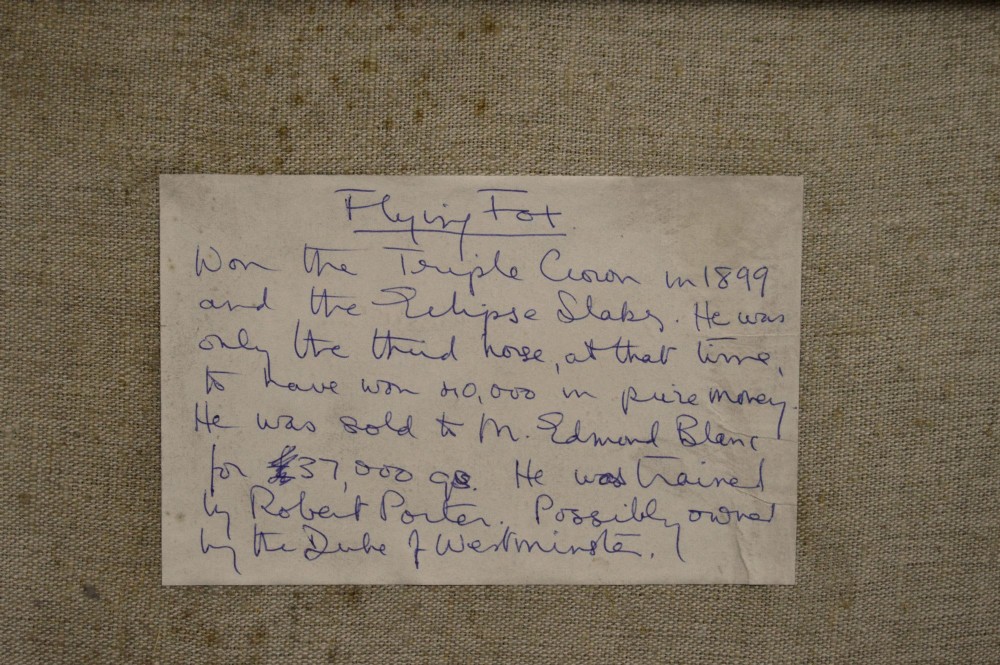 Flying Fox
Won the Triple Crown in 1899
and the Eclipse Stakes. He was
only the third horse, at that time,
to have won 40,000 in prize money.
He was sold to M. Edmond Blanc
for £37,000 gs. He was trained
by Robert Porter. Possibly owned
by the Duke of Westminster.